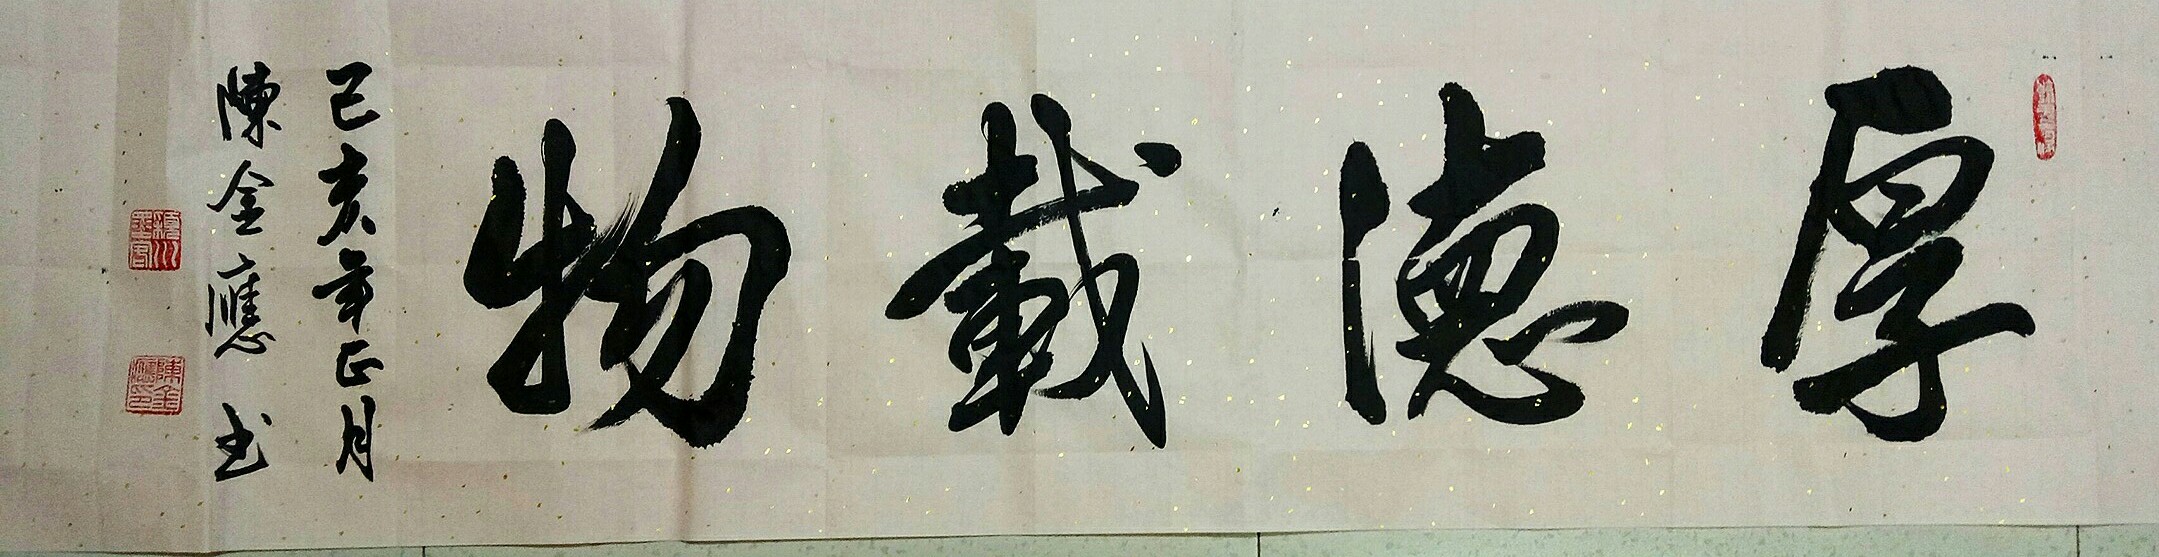 厚德載物
己亥年正月
陳金應書